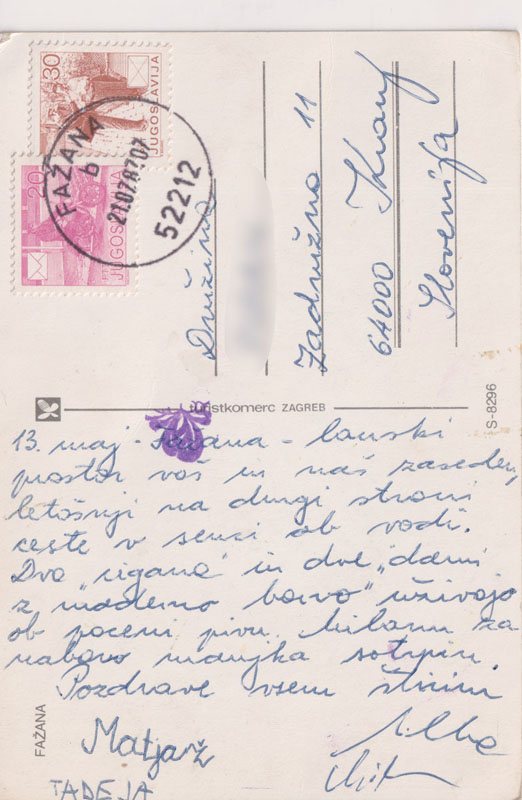 30
JUGOSLAVIJA
20
PTT JUGOSLAVIJA
FAŽANA
b
21.07.87.07
52212
Družina
Zadružna 11
64000 Kranj
Slovenija
turistkomerc ZAGREB
S-8296
13. maj - Fažana - lanski
prostor vaš in naš zaseden,
letošnji na drugi strani
ceste v senci ob vodi.
Dva "cigana" in dve "dami
z moderno barvo" uživajo
ob poceni pivu. Milanu za
nabavo manjka sotrpin.
Pozdrave vsem štirim
FAŽANA
Matjaž
TADEJA